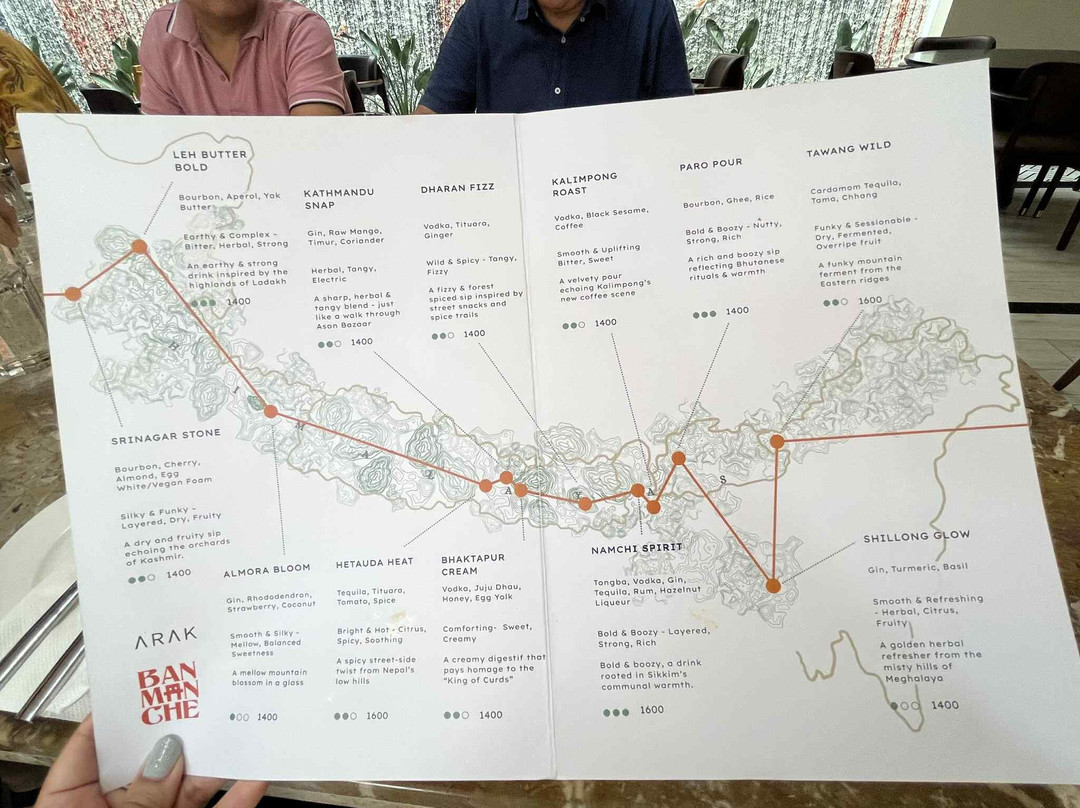 LEH BUTTER
BOLD
Bourbon, Aperol, Yak
Butter
Earthy & Complex -
Bitter, Herbal, Strong
An earthy & strong
drink inspired by the
highlands of Ladakh
1400
KATHMANDU
SNAP
Gin, Raw Mango,
Timur, Coriander
Herbal, Tangy,
Electric
A sharp, herbal &
tangy blend - just
like a walk through
Asan Bazaar
1400
DHARAN FIZZ
Vodka, Titaura,
Ginger
Wild & Spicy - Tangy,
Fizzy
A fizzy & forest
spiced sip inspired by
street snacks and
spice trails
1400
KALIMPONG
ROAST
Vodka, Black Sesame,
Coffee
Smooth & Uplifting
Bitter, Sweet
A velvety pour
echoing Kalimpong's
new coffee scene
1400
PARO POUR
Bourbon, Ghee, Rice
Bold & Boozy - Nutty,
Strong, Rich
A rich and boozy sip
reflecting Bhutanese
rituals & warmth
1400
TAWANG WILD
Cardamom Tequila,
Tama, Chhang
Funky & Sessionable -
Dry, Fermented,
Overripe fruit
A funky mountain
ferment from the
Eastern ridges
1600
H I M A L A Y A S
SRINAGAR STONE
Bourbon, Cherry,
Almond, Egg
White/Vegan Foam
Silky & Funky -
Layered, Dry, Fruity
A dry and fruity sip
echoing the orchards
of Kashmir.
1400
ALMORA BLOOM
Gin, Rhododendron,
Strawberry, Coconut
Smooth & Silky -
Mellow, Balanced
Sweetness
A mellow mountain
blossom in a glass
1400
HETAUDA HEAT
Tequila, Titaura,
Tomato, Spice
Bright & Hot - Citrus,
Spicy, Soothing
A spicy street-side
twist from Nepal's
low hills
1600
BHAKTAPUR
CREAM
Vodka, Juju Dhau,
Honey, Egg Yolk
Comforting- Sweet,
Creamy
A creamy digestif that
pays homage to the
"King of Curds"
1400
NAMCHI SPIRIT
Tongba, Vodka, Gin,
Tequila, Rum, Hazelnut
Liqueur
Bold & Boozy - Layered,
Strong, Rich
Bold & boozy, a drink
rooted in Sikkim's
communal warmth.
1600
SHILLONG GLOW
Gin, Turmeric, Basil
Smooth & Refreshing
- Herbal, Citrus,
Fruity
A golden herbal
refresher from the
misty hills of
Meghalaya
1400
ARAK
BAN
MAN
CHE